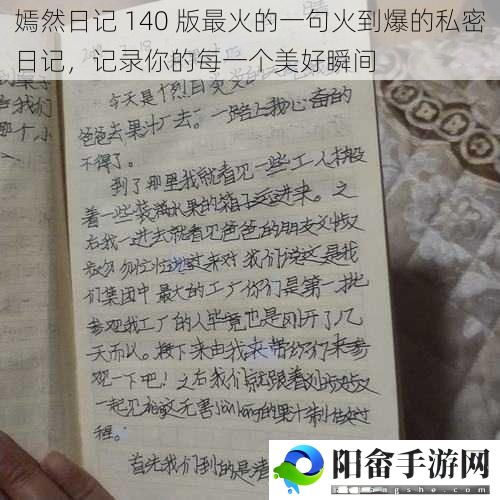 嫣然日记 140 版最火的一句火到爆的私密
日记，记录你的每一个美好瞬间
今天是个烈日炎炎的
爸爸去果汁厂去。一路上我心奋的
不得了。
到了那里我就看见一些工人在搬
着一些装满水果的箱子运进来。之
后我一进去就看见爸爸的朋友刘叔叔
匆匆忙忙地过来对我们说这是我
们集团中最大的工厂你们是第一批
参观我工厂的人毕竟也是刚开了几
天而以。接下来由我来带你们来参
观一下吧！之后我们就跟着刘叔叔
一起见证这无害的果汁制作过
程。
首先我们到的是清
我们
个小
阳畲手游网